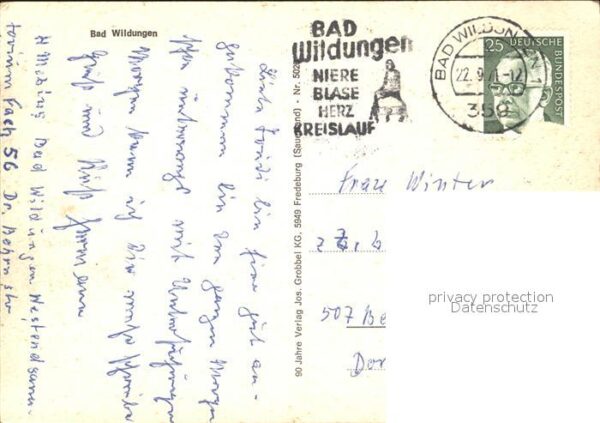 Bad Wildungen
Liebe Friedi bin hier gut an-
gekommen bin den ganzen Morgen
schon unterwegs mit Untersuchungen
Morgen kann ich Dir mehr schreiben
Gruß und Kuß Hermann
H Bad Wildungen Westendsana-
torium Fach 56 Dr.
90 Jahre Verlag Jos. Grobbel KG, 5949 Fredeburg (Sauerland) - Nr. 502
BAD
Wildungen
NIERE
BLASE
HERZ
KREISLAUF
BAD WILDUNGEN 1
22.9.71-12
359
25 DEUTSCHE BUNDESPOST
Frau Winter
507 Be
Dor
privacy protection
Datenschutz